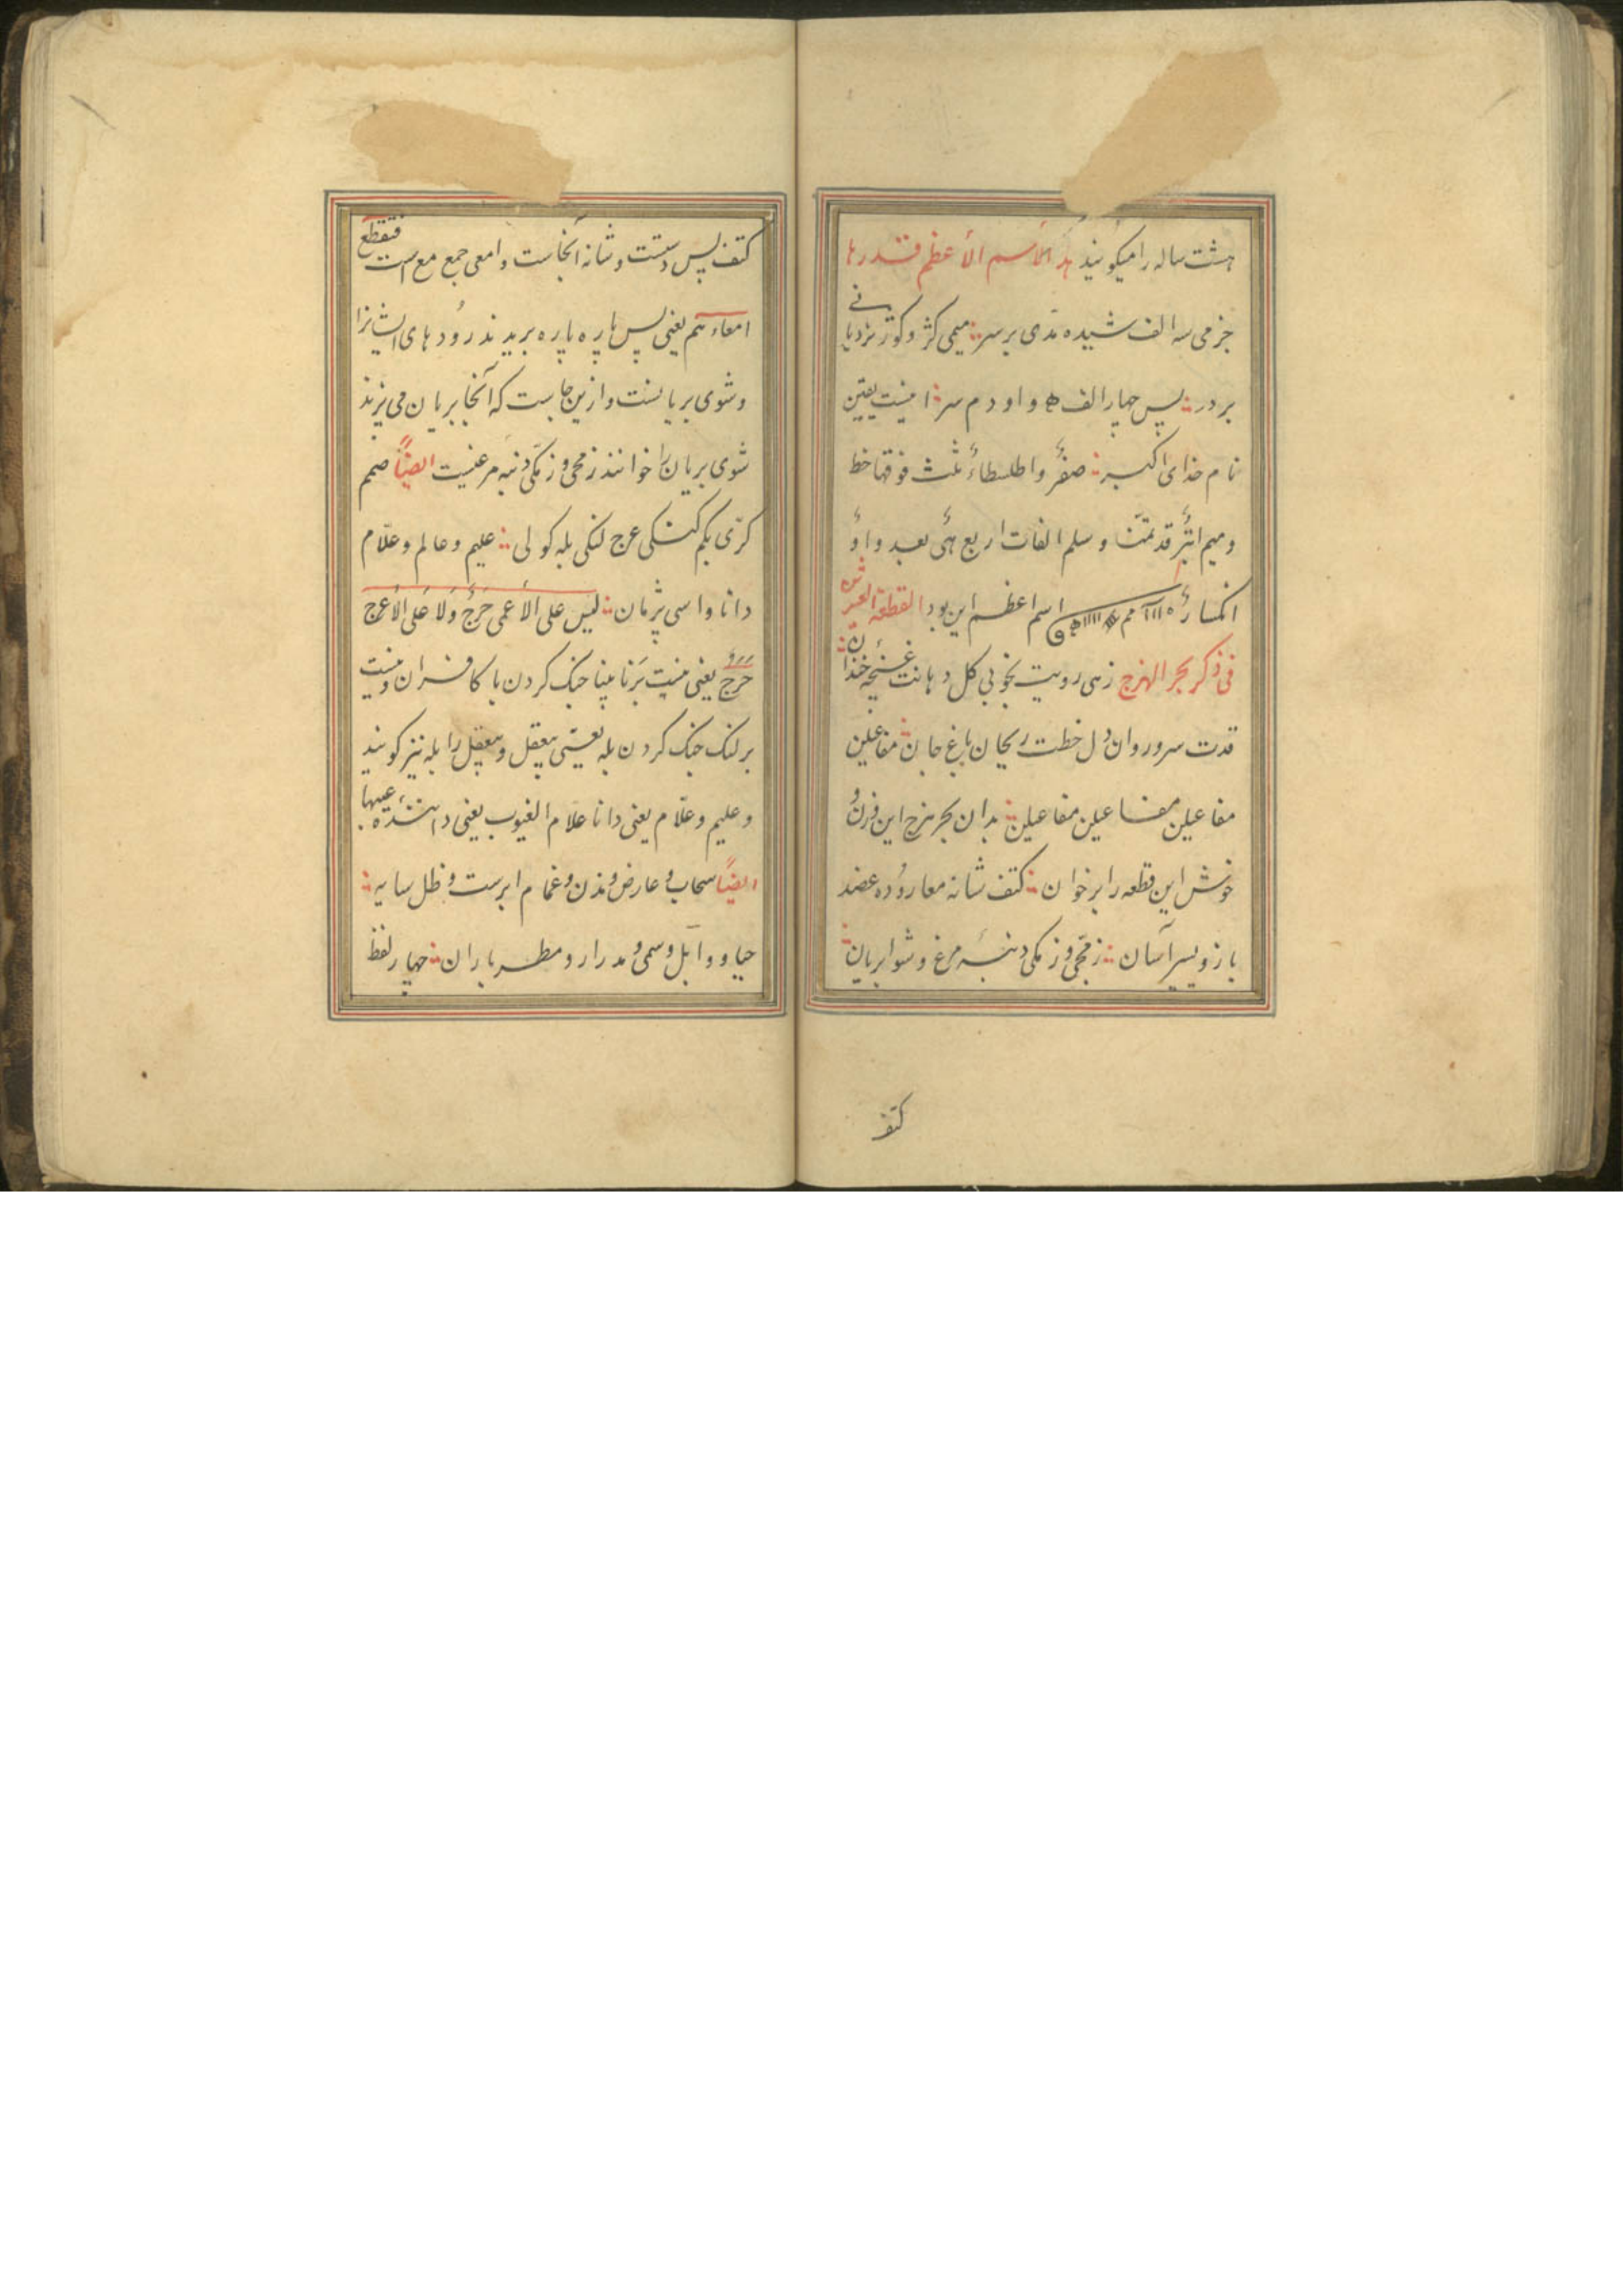 هشت ساله را میکویند هذ الأسم الأعظم قدرها
جزمی سه الف شیده مدّی بر سر میمی کژ و کوژ نردبانے
بر در پس چهار الف ه و او دم سر اینست یقین
نام خدای اکبر صفرٌ واطلسطاءٌ ثلث فوقها خط
ومیم ابترٌ قد تمّنا وسلم الفات اربع هئی بعد واوٌ
انکسارٌ اسم اعظم این بود القطعة العشرون
فی ذکر بحر الهزج زهی رویت بخوبی کل دهانت غنچۀ خندان
قدت سرو روان دل خطت ریحان باغ جان مفاعیلن
مفاعیلن مفاعیلن مفاعیلن بدان بحر هزج این وزن و
خوش این قطعه را برخوان کتف شانه معا روده عضد
بازو یسیر آسان زمجّی و زمکی دنبۀ مرغ و شوا بریان
کتف
کتف پس دستت و شانه آنجاست وامعی جمع مع است فتقطع
امعاءهم یعنی پس پاره پاره بریدند رودهای ایشانرا
وشوی بریانست وازین جاست که آنجا بریان می پزند
شوی بریان را خوانند زمجی و زمکی دنبه مرغنیست ایضاً صمم
کرّی بکم کنکی عرج لنکی بله کولی علیم وعالم وعلّام
دانا واسی پژمان لیس علی الأعمی حَرَجٌ وَلا عَلی الأعرج
حَرَجٌ یعنی نیست بَر نابینا جنک کردن با کافران ونیست
بر لنک جنک کردن بله یعنی بیعقل وبیعقل را بله نیز کویند
وعلیم وعلّام یعنی دانا علّام الغیوب یعنی دانندۀ غیبها
ایضاً سحاب و عارض و مزن و غمام ابرست و ظل سایه
حیا و وابل و سمی و مدرار و مطر باران چهار لفظ